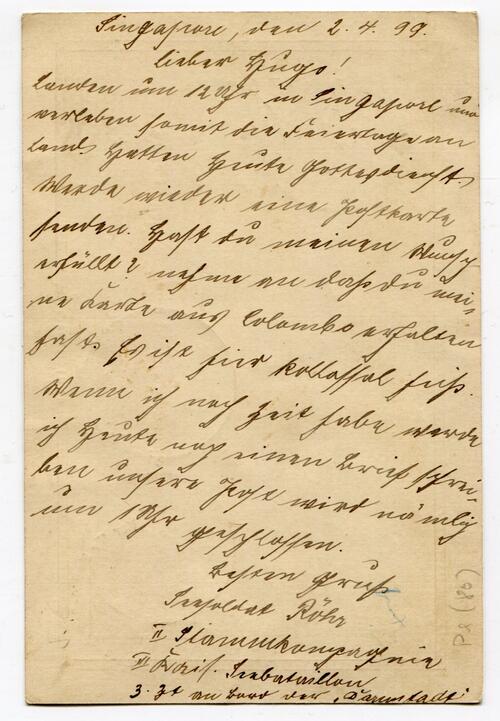 Singapore, den 2. 4. 99.
Lieber Hugo!
Landen um 12 Uhr in Singapore und
verleben somit die Feiertage an
Land. Hatten Heute Gottesdienst.
Werde wieder eine Postkarte
senden. Hast du meinen Wunsch
erfüllt? nehme an daß du mei-
ne Karte aus Colombo erhalten
hast. Es ist hier kollossal heiß.
Wenn ich noch Zeit habe werde
ich Heute noch einen Brief schrei-
ben unsere Post wird nämlich
um 1 Uhr geschlossen.
Besten Gruß
Seesoldat Röhr
II Stammkompagnie
III Kais. Seebataillon
3. Zt an Bord der „Darmstadt“